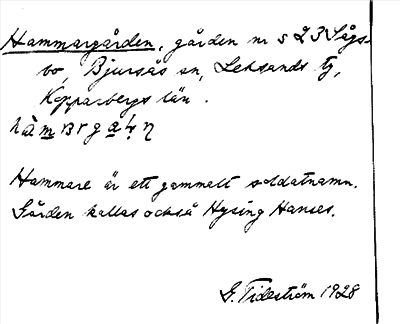 Hammargården, gården nr 5 & 3 Sågs-
bo, Bjursås sn, Leksands tg,
Kopparbergs län.
Hammare är ett gammalt soldatnamn.
Gården kallas också Hysing Hanses.
G. Tideström 1928